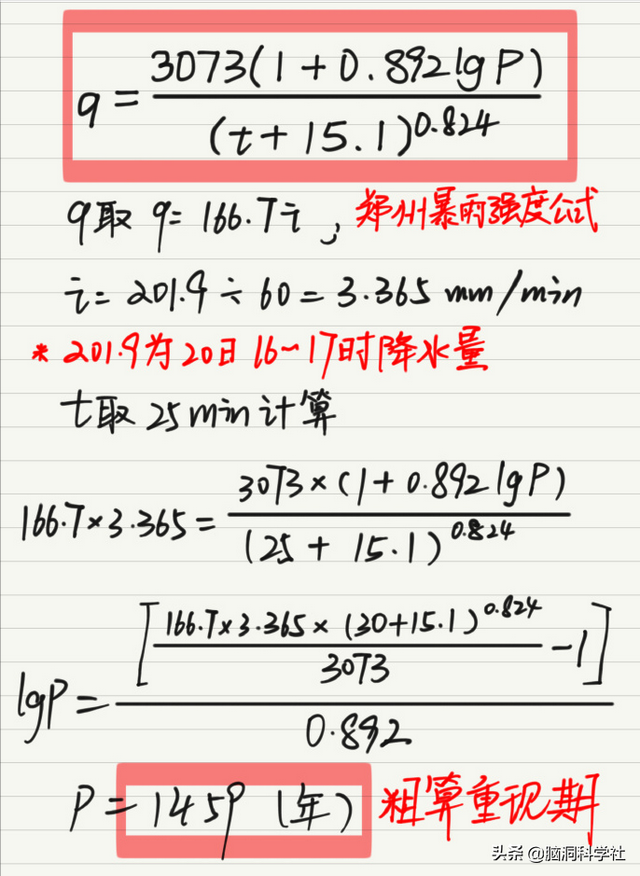 q = 3073(1+0.892lgP) / (t+15.1)^0.824
q取 q=166.7i，郑州暴雨强度公式
i=201.9÷60=3.365 mm/min
* 201.9为20日16~17时降水量
t取25min计算
166.7×3.365 = 3073×(1+0.892lgP) / (25+15.1)^0.824
lgP = [166.7×3.365×(30+15.1)^0.824 / 3073 - 1] / 0.892
P=1459（年）粗算重现期
头条 @脑洞科学社